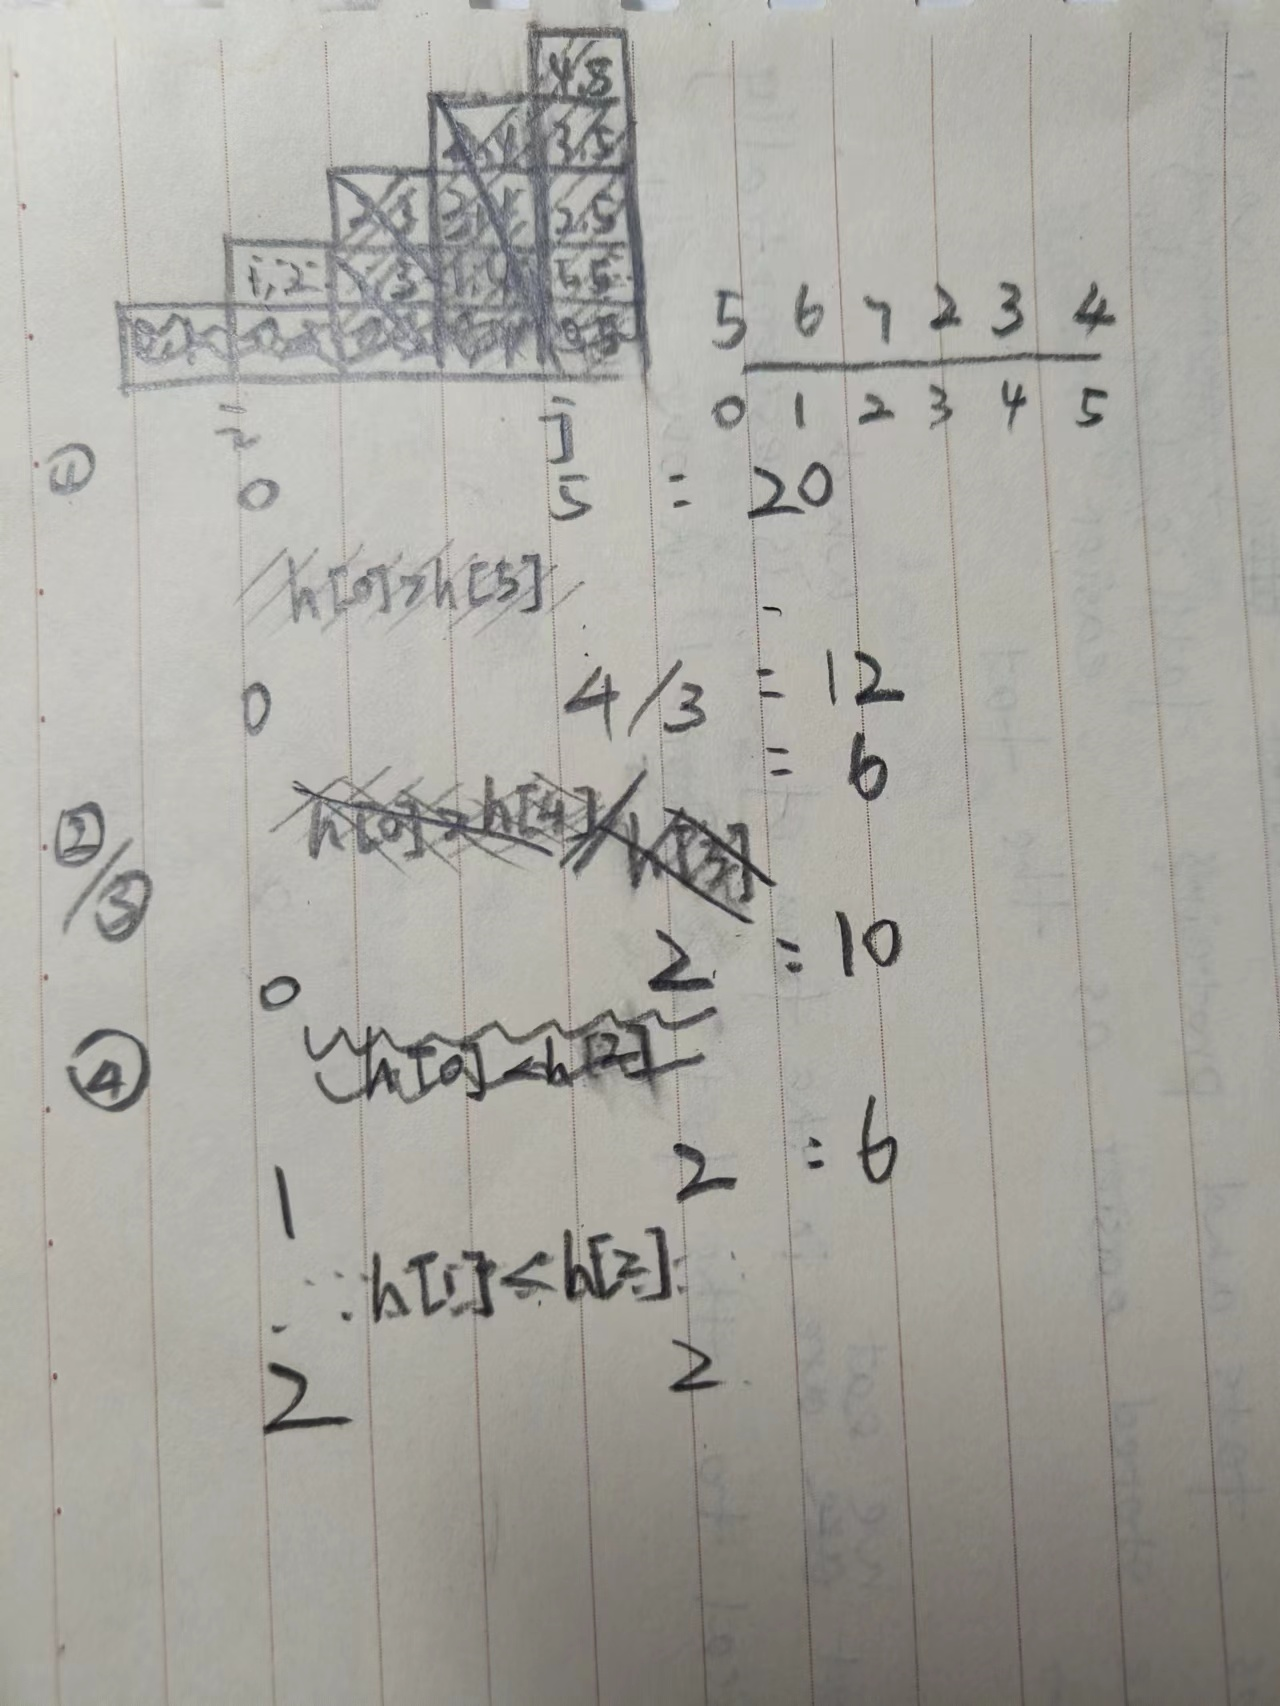 4,5
2,4 3,5
2,3 3,4 2,5
1,2 1,3 1,4 1,5
0,1 0,2 0,3 0,4 0,5
5 6 7 2 3 4
0 1 2 3 4 5
i j
① 0 5 = 20
h[0]>h[5]
0 4/3 = 12
= 6
②/③ h[0]>h[4]/h[3]
0 2 = 10
④ h[0]<h[2]
1 2 : 6
h[1]<h[2]
2 2